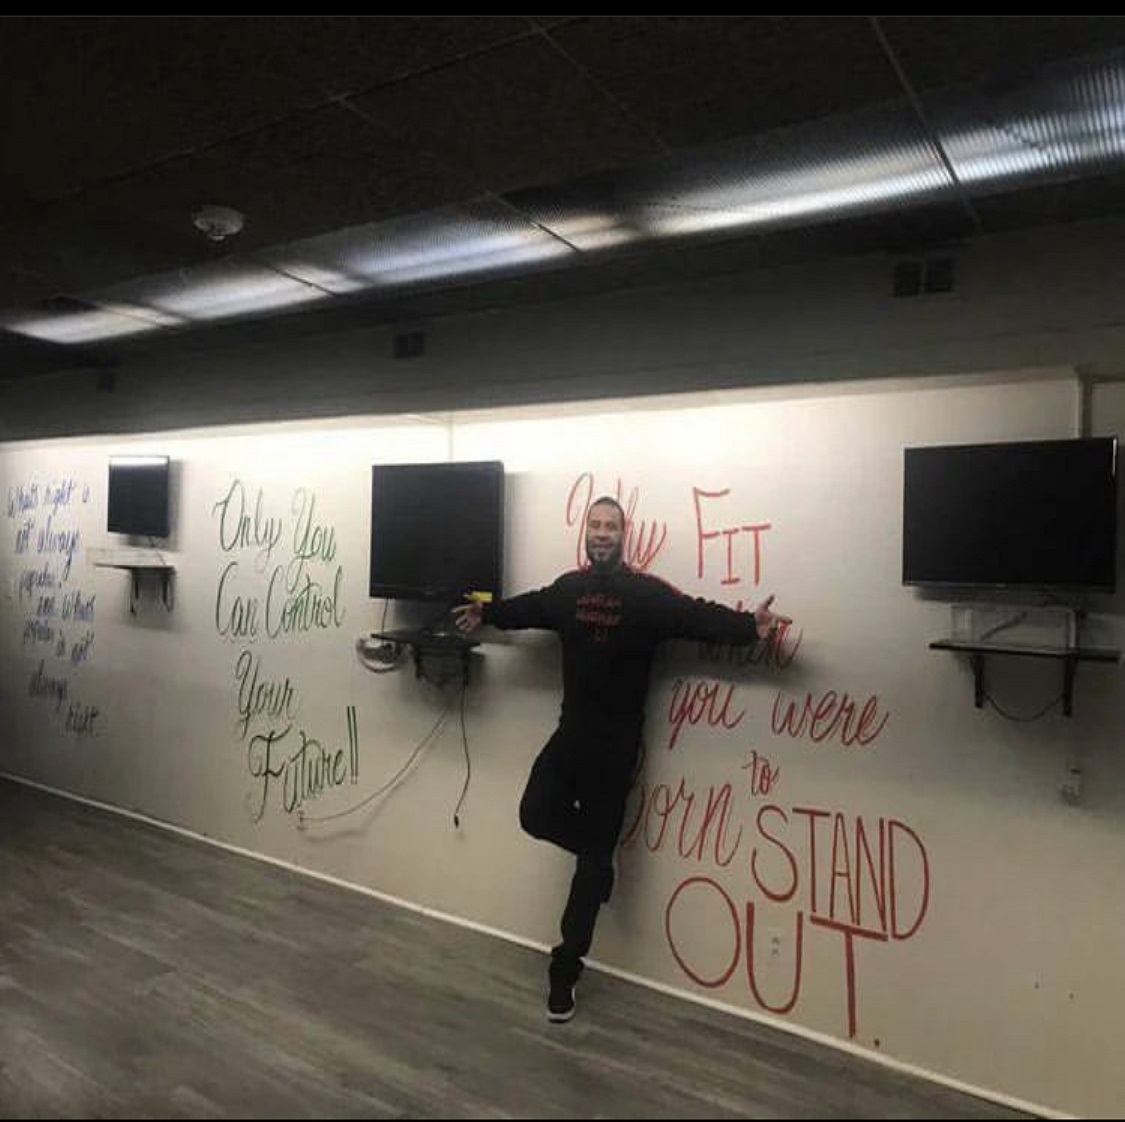 What's right is
not always
popular
and what's
popular is not
always
right
Only You
Can Control
Your
Future!!
Why FIT
when
you were
born to
STAND
OUT.